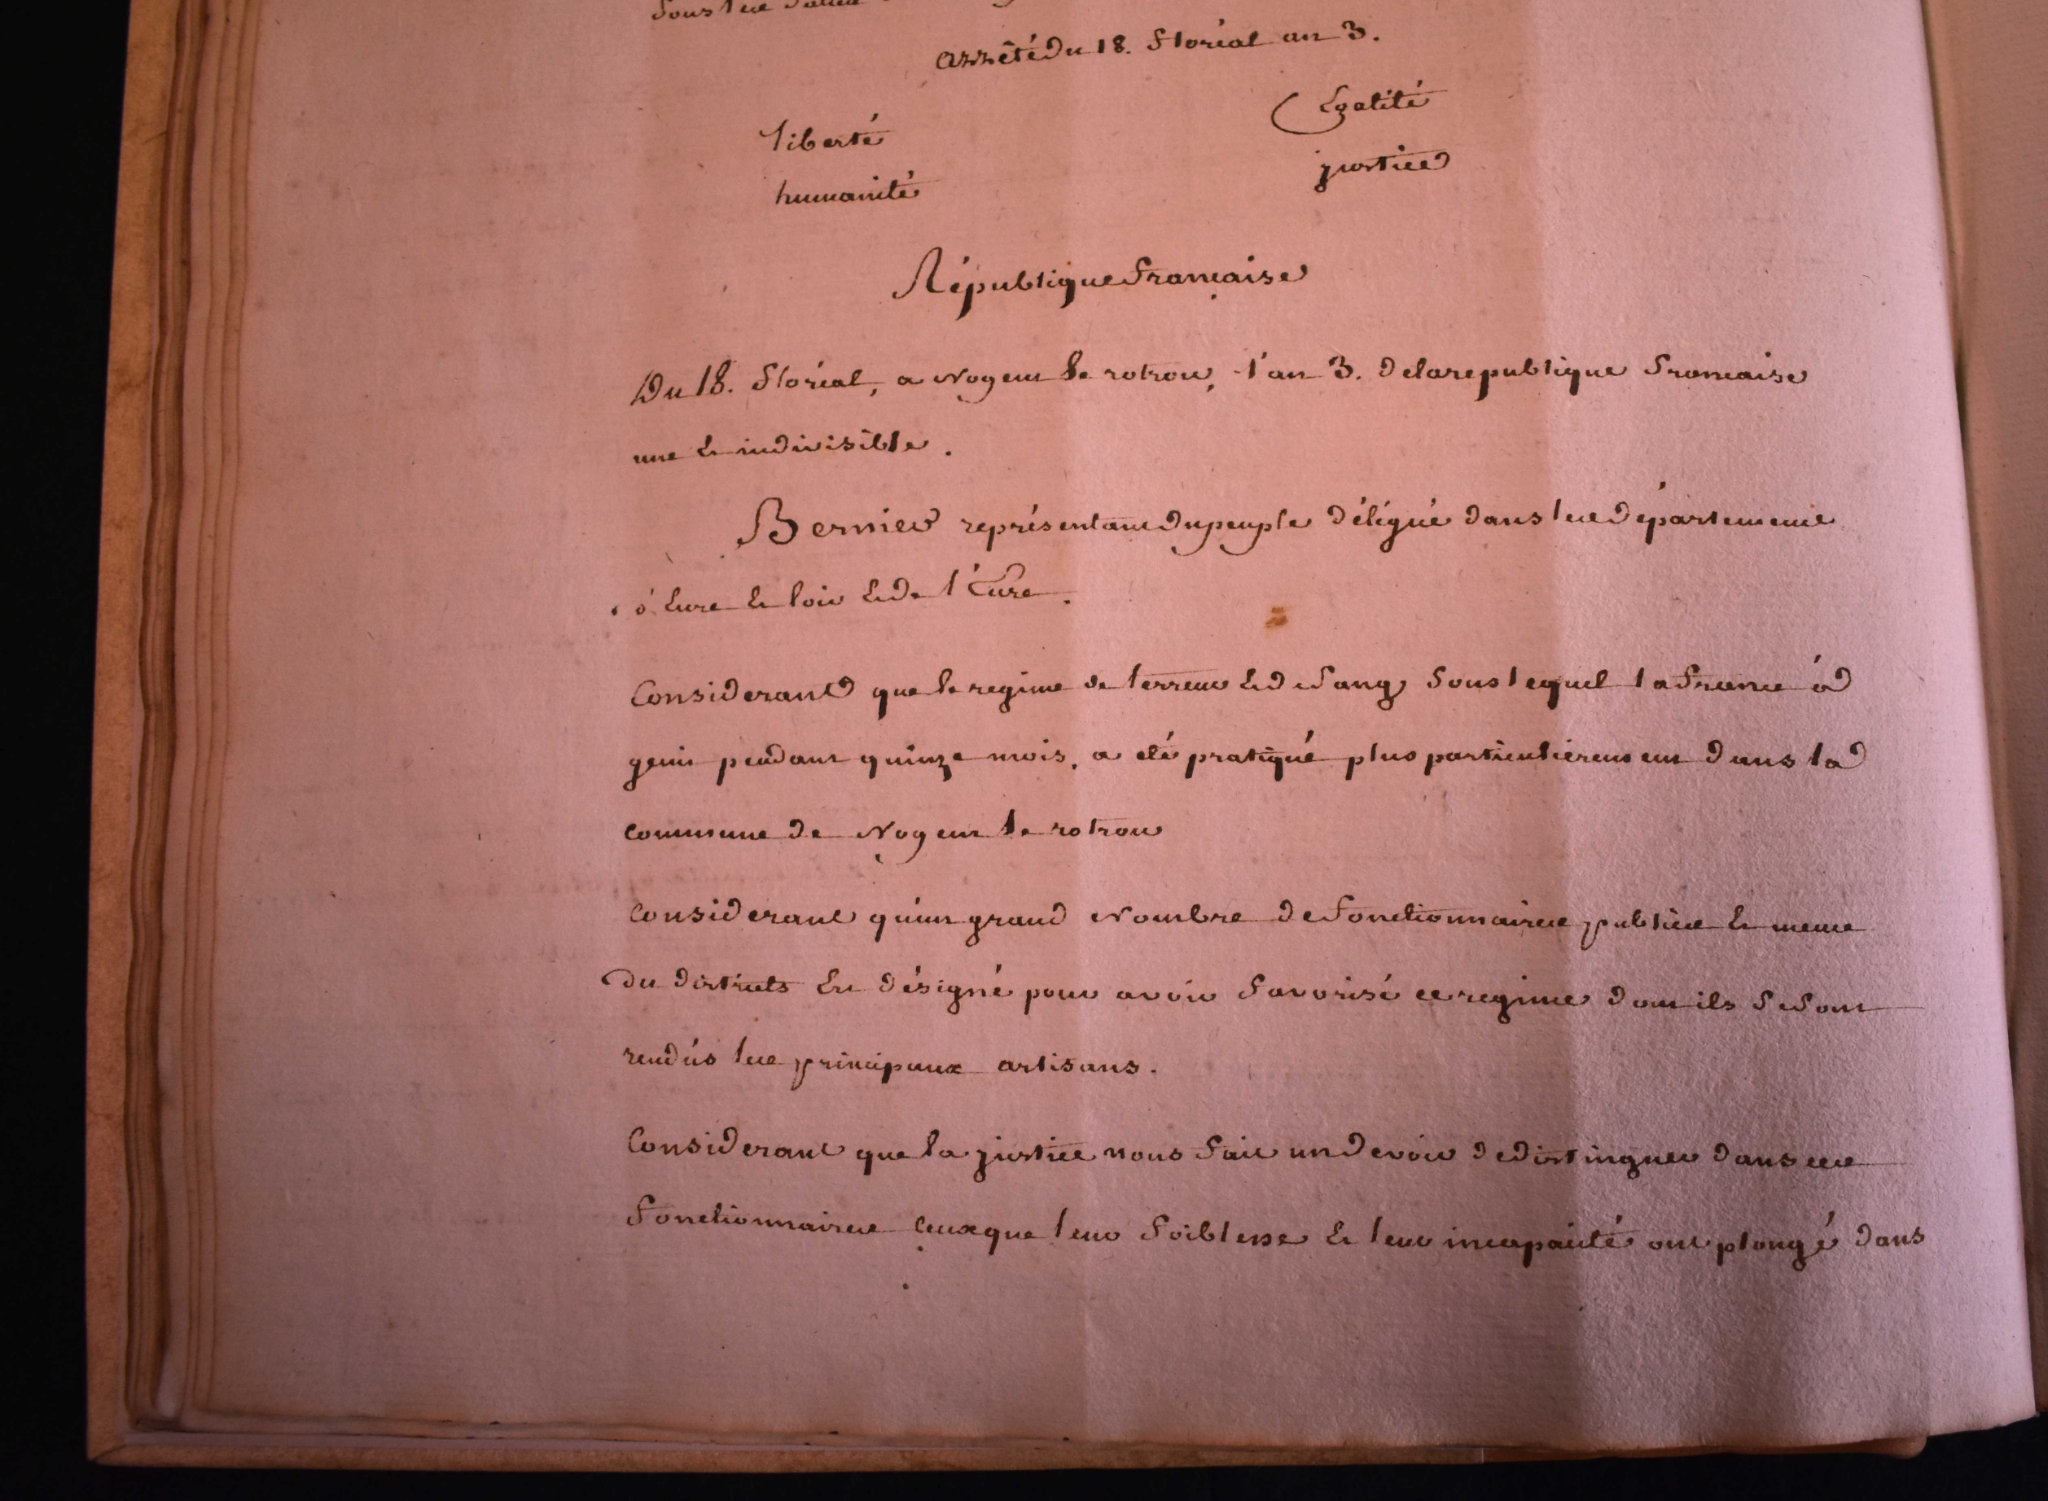 sous les
arrêté du 18. floréal an 3.
liberté Egalité
humanité justice
République française
Du 18. floréal, a Nogent le rotrou, l'an 3. de la republique francaise
une et indivisible.
Bernier représentant du peuple délégué dans les département
d'Eure et loir et de l'Eure.
Considerant que le regime de terreur et de sang sous lequel la france a
gemi pendant quinze mois, a eté pratiqué plus particulierement dans la
commune de Nogent le rotrou
Considerant qu'un grand Nombre de fonctionnaires publics et meme
du districts est désigné pour avoir favorisé ce regime dont ils se sont
rendus les principaux artisans.
Considerant que la justice nous fait un devoir de distinguer dans ces
fonctionnaires ceux que leur foiblesse et leur incapacité ont plongé dans